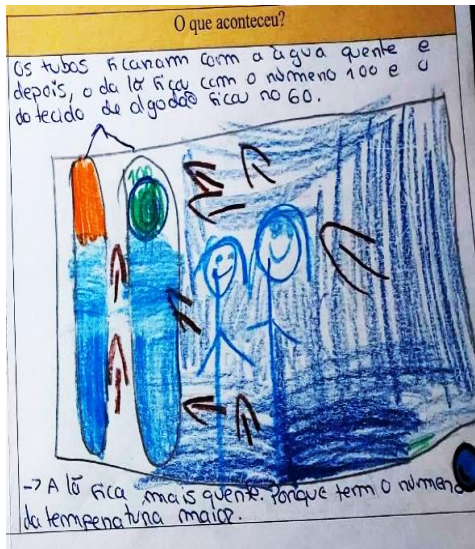 O que aconteceu?
Os tubos ficaram com a água quente e
depois, o da lã fica com o número 100 e o
do tecido de algodão fica no 60.
100
→ A lã fica mais quente. Porque tem o número
da temperatura maior.